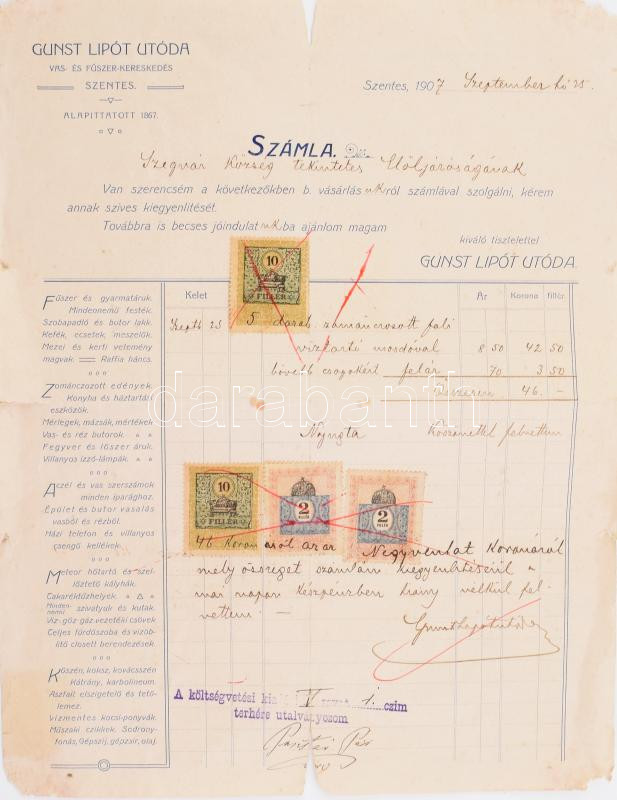 GUNST LIPÓT UTÓDA
VAS- ÉS FŰSZER-KERESKEDÉS
SZENTES.
ALAPITTATOTT 1867.
Szentes, 1907 Szeptember hó 25.
SZÁMLA.
Szegvár Község tekintetes Elöljáróságának
Van szerencsém a következőkben b. vásárlásukról számlával szolgálni, kérem
annak szives kiegyenlitését.
Továbbra is becses jóindulatukba ajánlom magam
kiváló tisztelettel
GUNST LIPÓT UTÓDA.
Kelet
Ár Korona fillér
10
FILLÉR
Szept 23 5 darab zománcrosott fali
viztartó mosdóval 8 50 42 50
bővebb csapokért felár 70 3 50
Összesen 46 -
Nyugta
Köszönettel felvettem
10
FILLÉR
2
FILLÉR
2
FILLÉR
46 Koronáról azaz Negyvenhat Koronáról
mely összeget számlám kiegyenlítéseül a
mai napon készpénzben hiány nélkül fel-
vettem. -
Gunst Lipót utóda
A költségvetési V 1. czim
terhére utalványozom
Fűszer és gyarmatáruk.
Mindennemű festék.
Szobapadló és butor lakk.
Kefék, ecsetek, meszelők.
Mezei és kerti vetemény
magvak. Raffia háncs.
Zománczozott edények.
Konyha és háztartási
eszközök.
Mérlegek, mázsák, mértékek
Vas- és réz butorok.
Fegyver és lőszer áruk.
Villanyos izzó-lámpák.
Aczél és vas szerszámok
minden iparághoz.
Épület és butor vasalás
vasból és rézből.
Házi telefon és villanyos
csengő kellékek.
Meteor hőtartó és szel-
lőztető kályhák.
Cakaréktűzhelyek.
Minden-
nemű szivatyuk és kutak.
Viz- gőz- gáz vezetéki csövek
Celjes fürdőszoba és vizöb-
litő closett berendezések.
Kőszén, koksz, kovácsszén
Kátrány, karbolineum.
Aszfalt elszigetelő és tető-
lemez.
Vizmentes kocsi-ponyvák.
Műszaki czikkek. Sodrony-
fonás, Gépszij, gépzsir, olaj.
darabanth